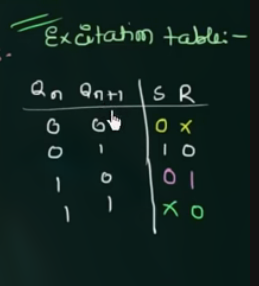 Excitation table:-
Qn Qn+1 S R
0 0 0 x
0 1 1 0
1 0 0 1
1 1 x 0